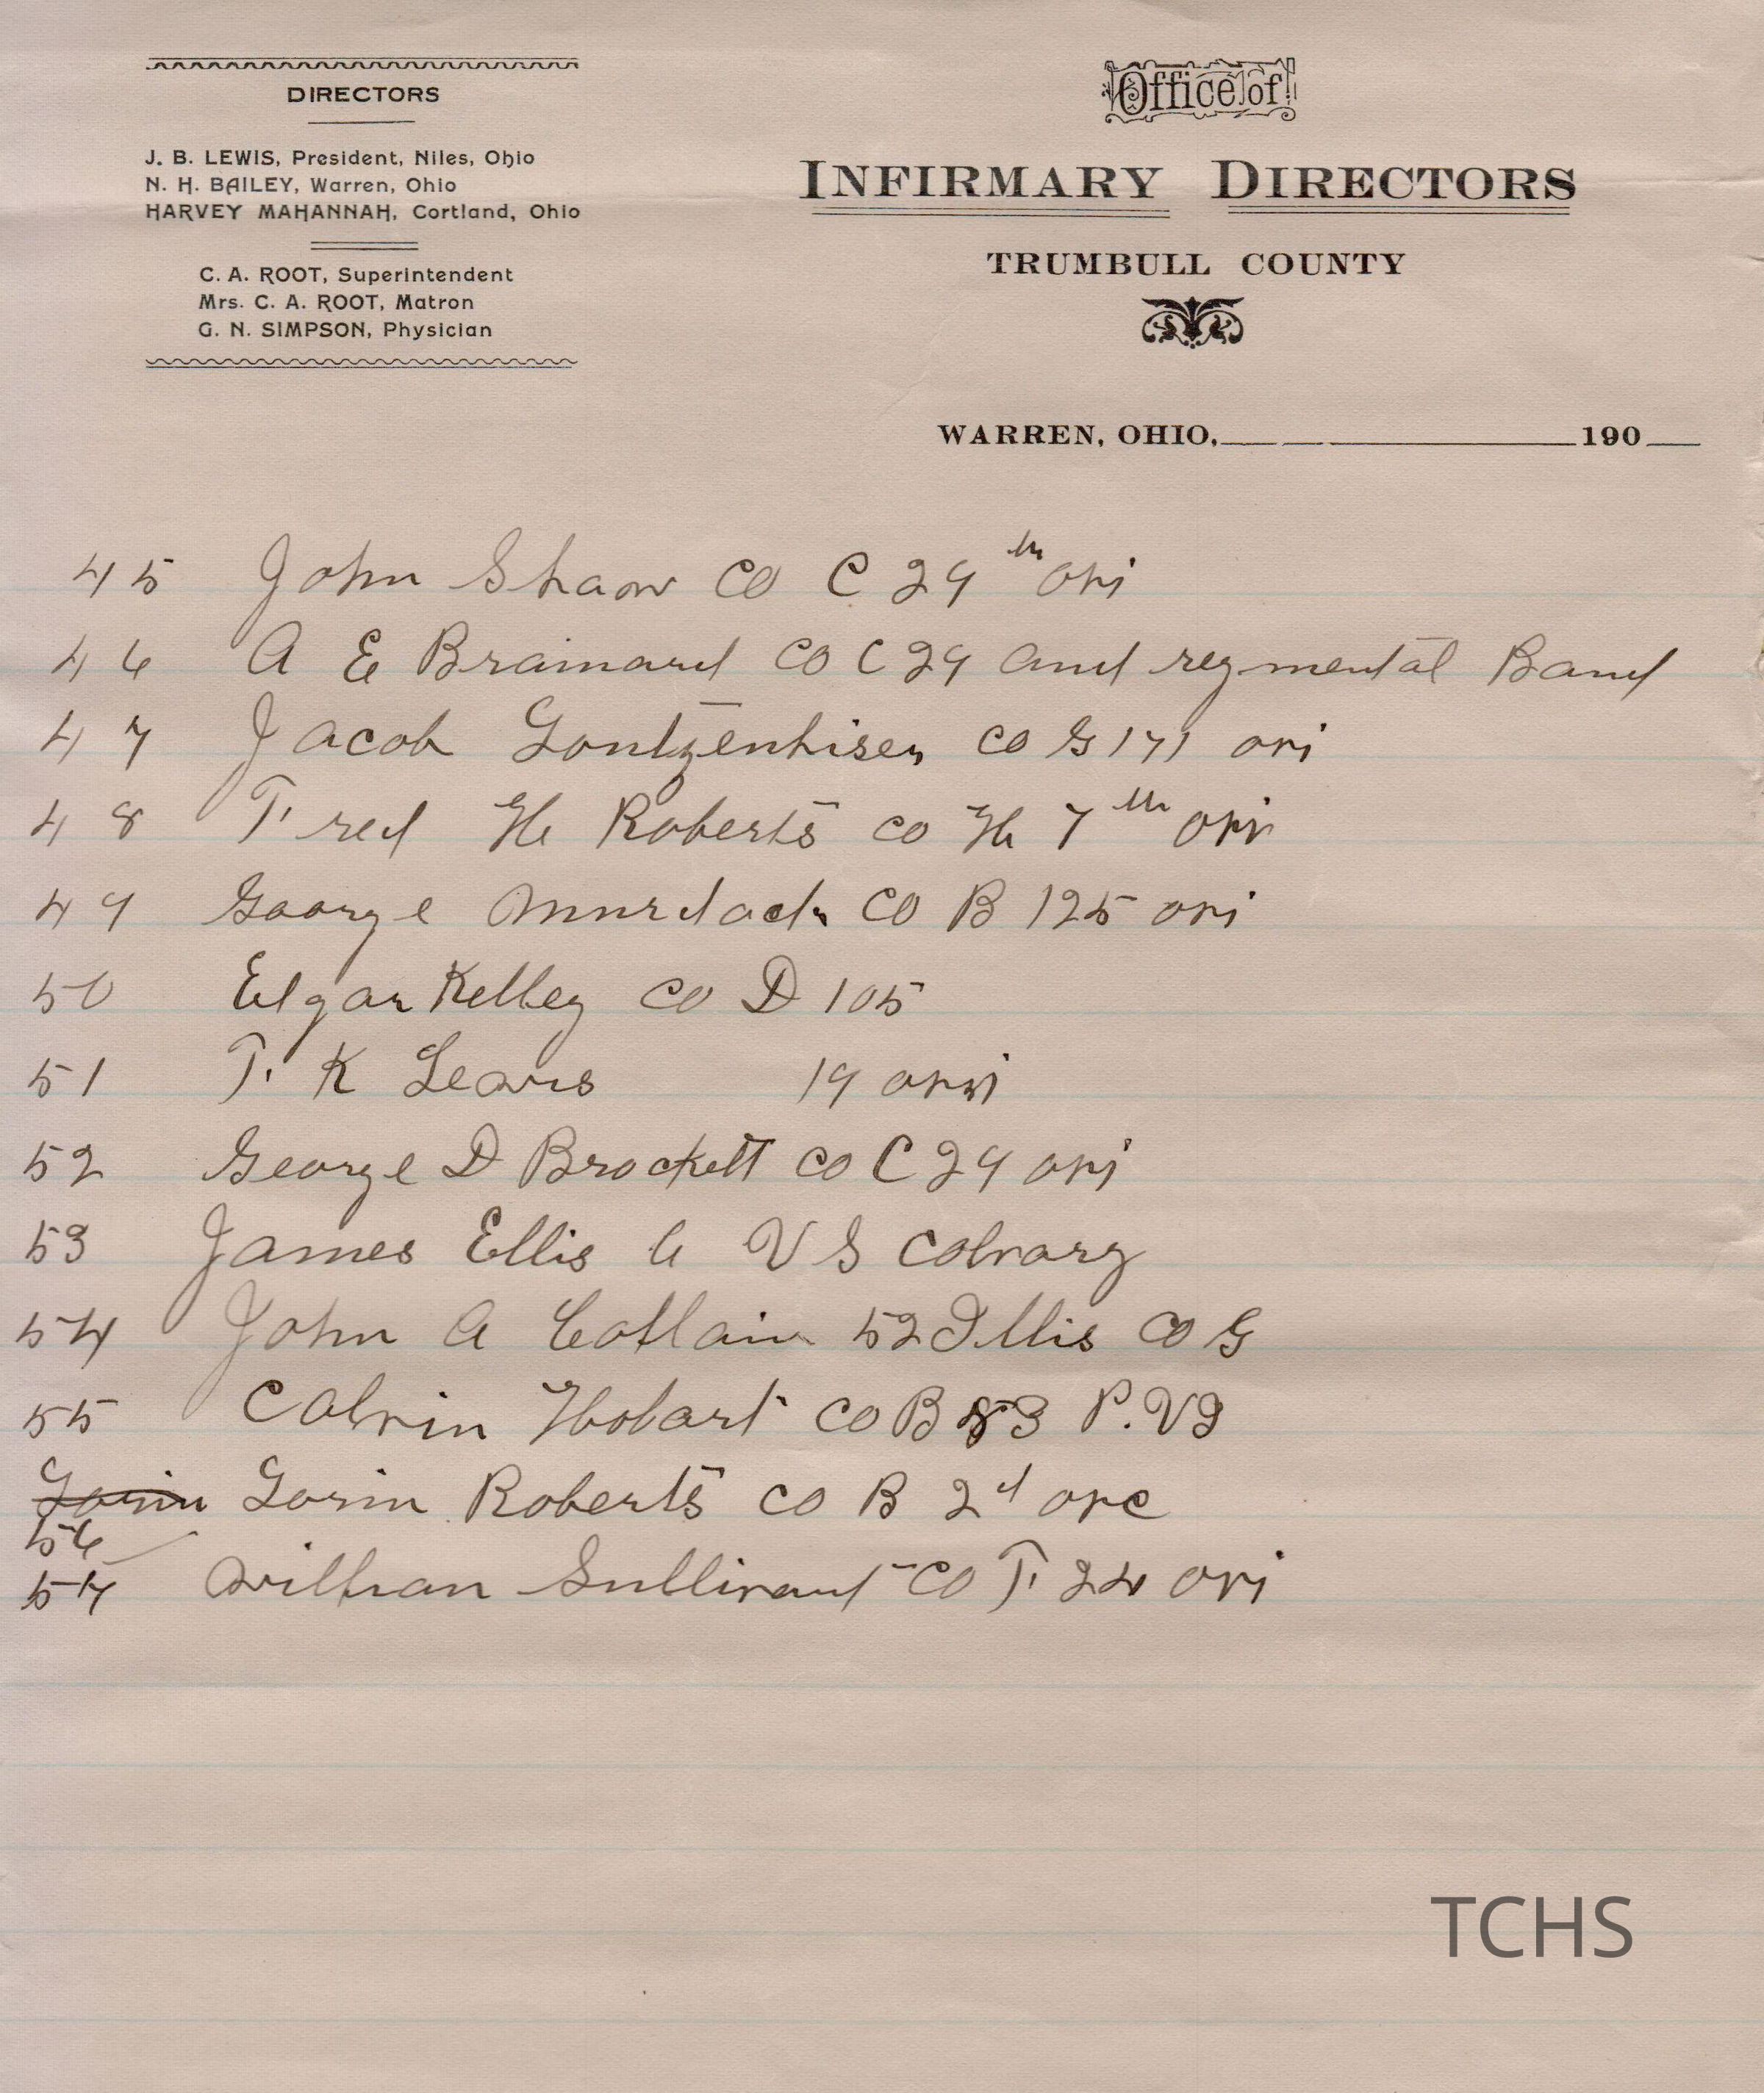 DIRECTORS
J. B. LEWIS, President, Niles, Ohio
N. H. BAILEY, Warren, Ohio
HARVEY MAHANNAH, Cortland, Ohio
C. A. ROOT, Superintendent
Mrs. C. A. ROOT, Matron
G. N. SIMPSON, Physician
Office of
INFIRMARY DIRECTORS
TRUMBULL COUNTY
WARREN, OHIO, 190
45 John Shaw CO C 29th OVI
46 A E Brainard CO C 29 and regmental Band
47 Jacob CO G 171 OVI
48 Fred H Roberts CO H 7th OVI
49 George Murdack CO B 125 OVI
50 Edgar Kelley CO D 105
51 T. K 19 OVI
52 George D Brockett CO C 29 OVI
53 James Ellis 6 US Calvary
54 John A 52 Illis CO G
55 Calvin Hobart CO B 83 P.VI
Lorin Lorin Roberts CO B 2d OVC
56
57 William CO F 24 OVI
TCHS